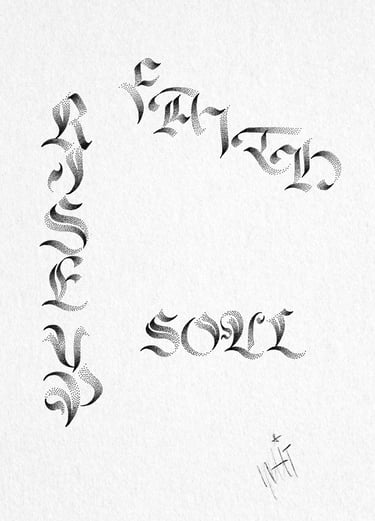 RISE UP
FAITH
SOUL